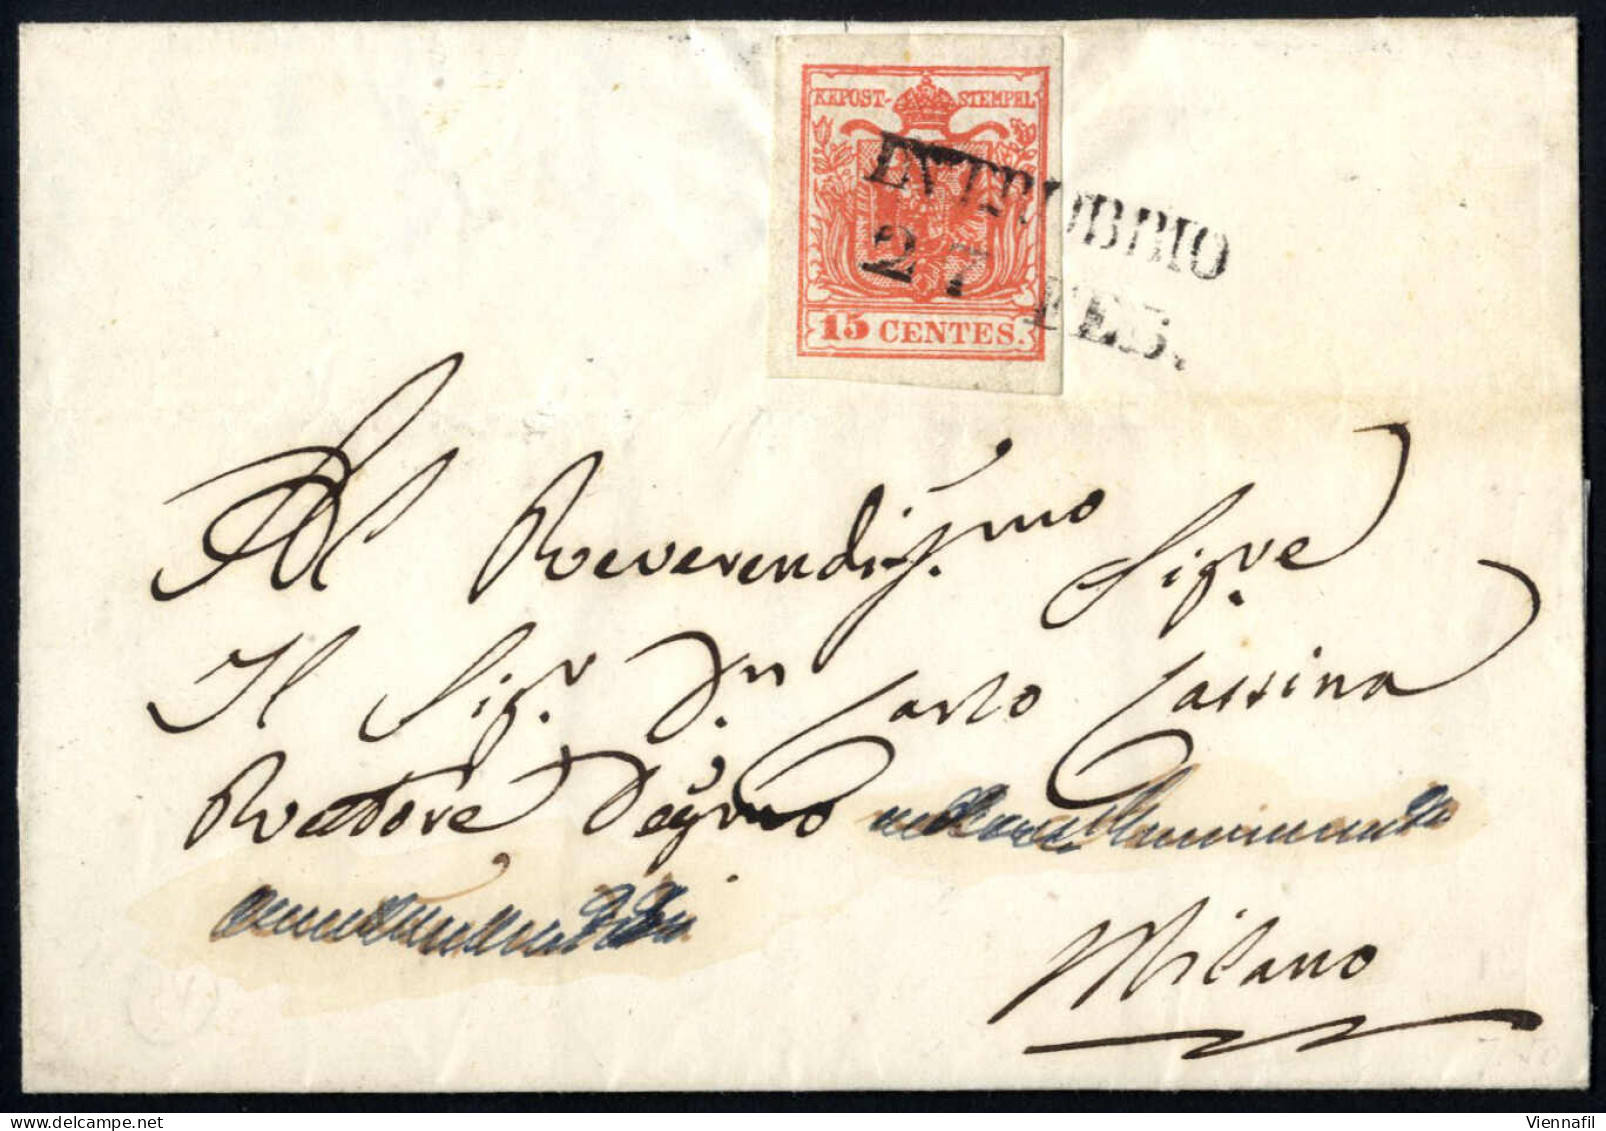 KKPOST-STEMPEL
15 CENTES.
INTROBBIO
27 FEB.
Al Reverendiss.mo Sig.re
Il Sig.r D.n Carlo Cassina
Rettore Degno
Milano
Viennafil